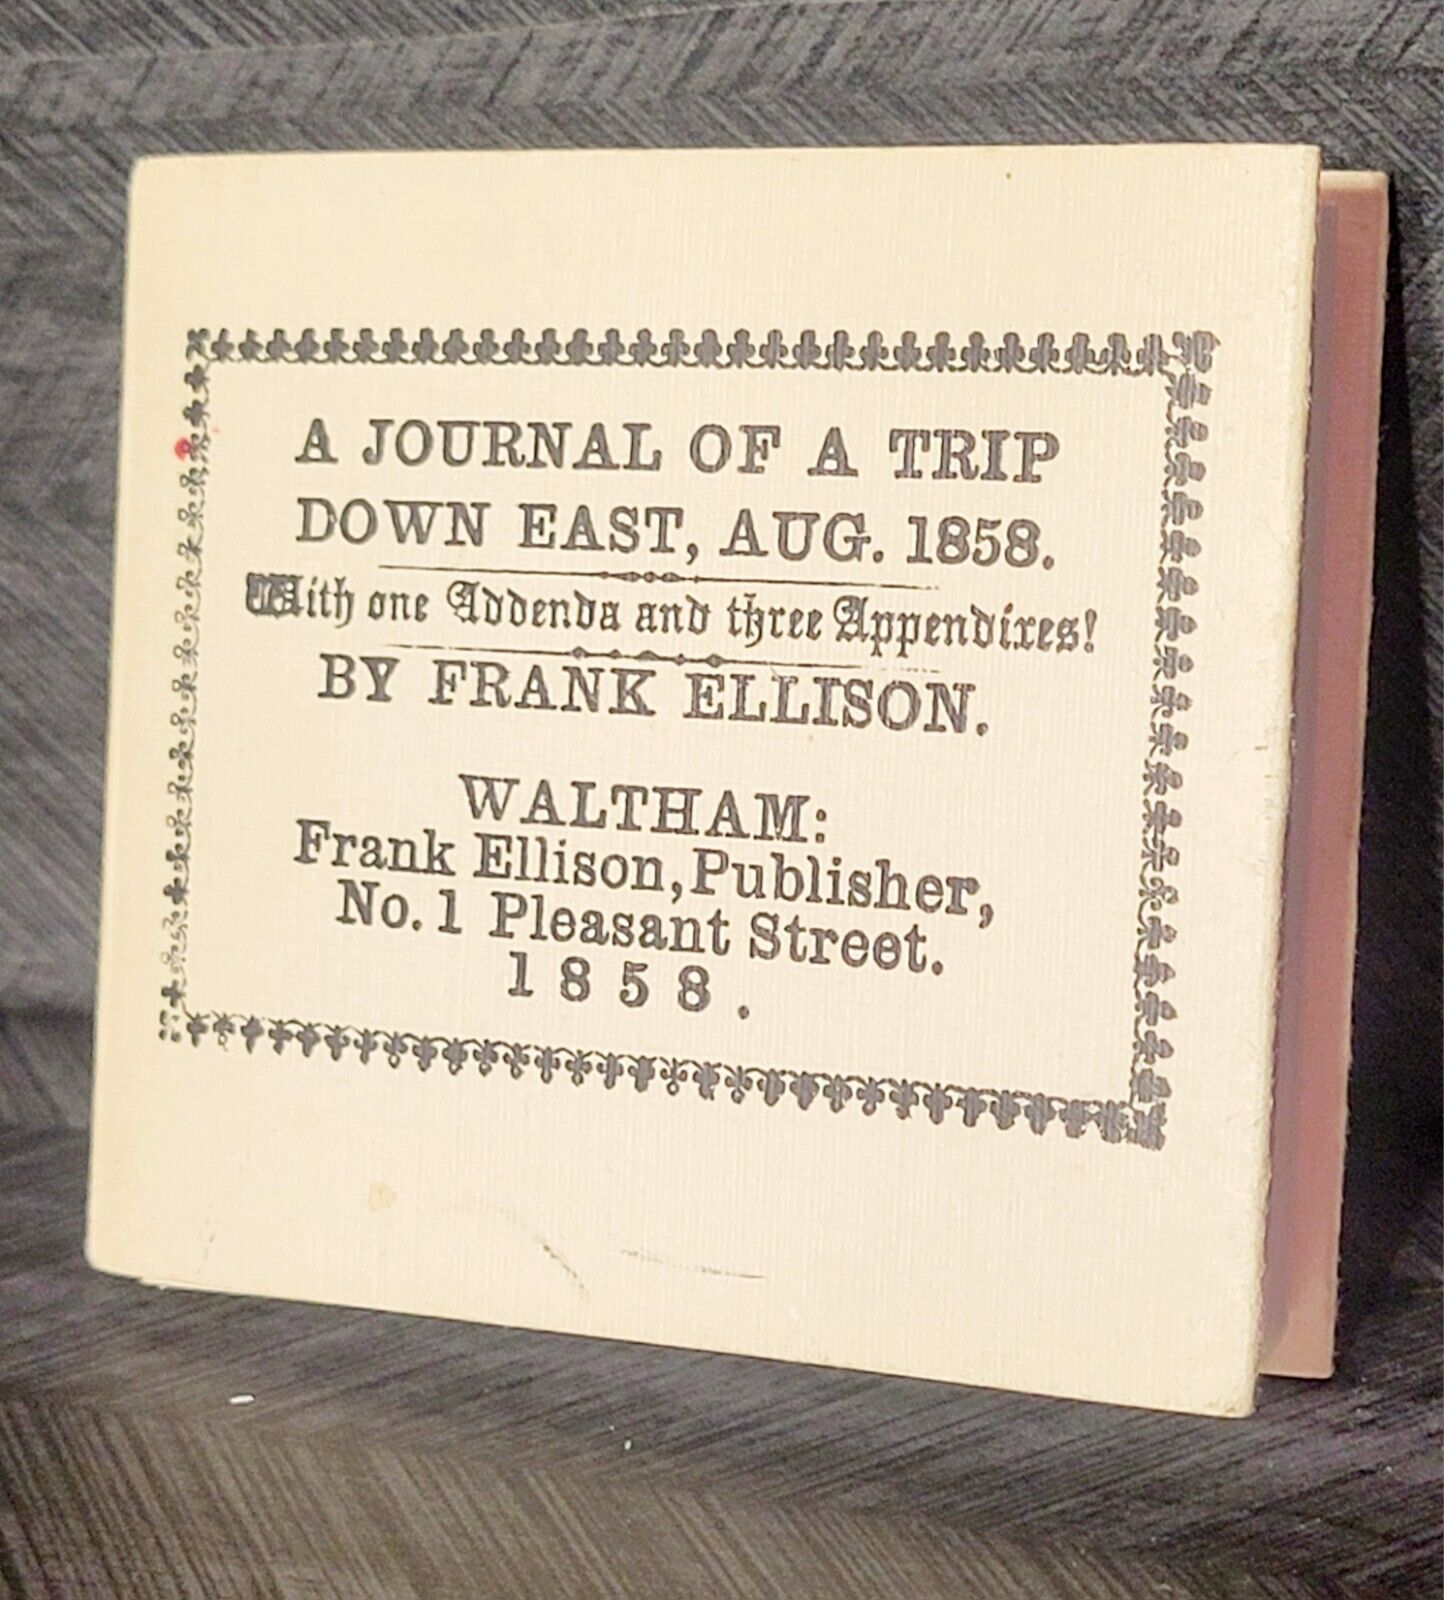 A JOURNAL OF A TRIP
DOWN EAST, AUG. 1858.
With one Addenda and three Appendixes!
BY FRANK ELLISON.
WALTHAM:
Frank Ellison, Publisher,
No. 1 Pleasant Street.
1858.